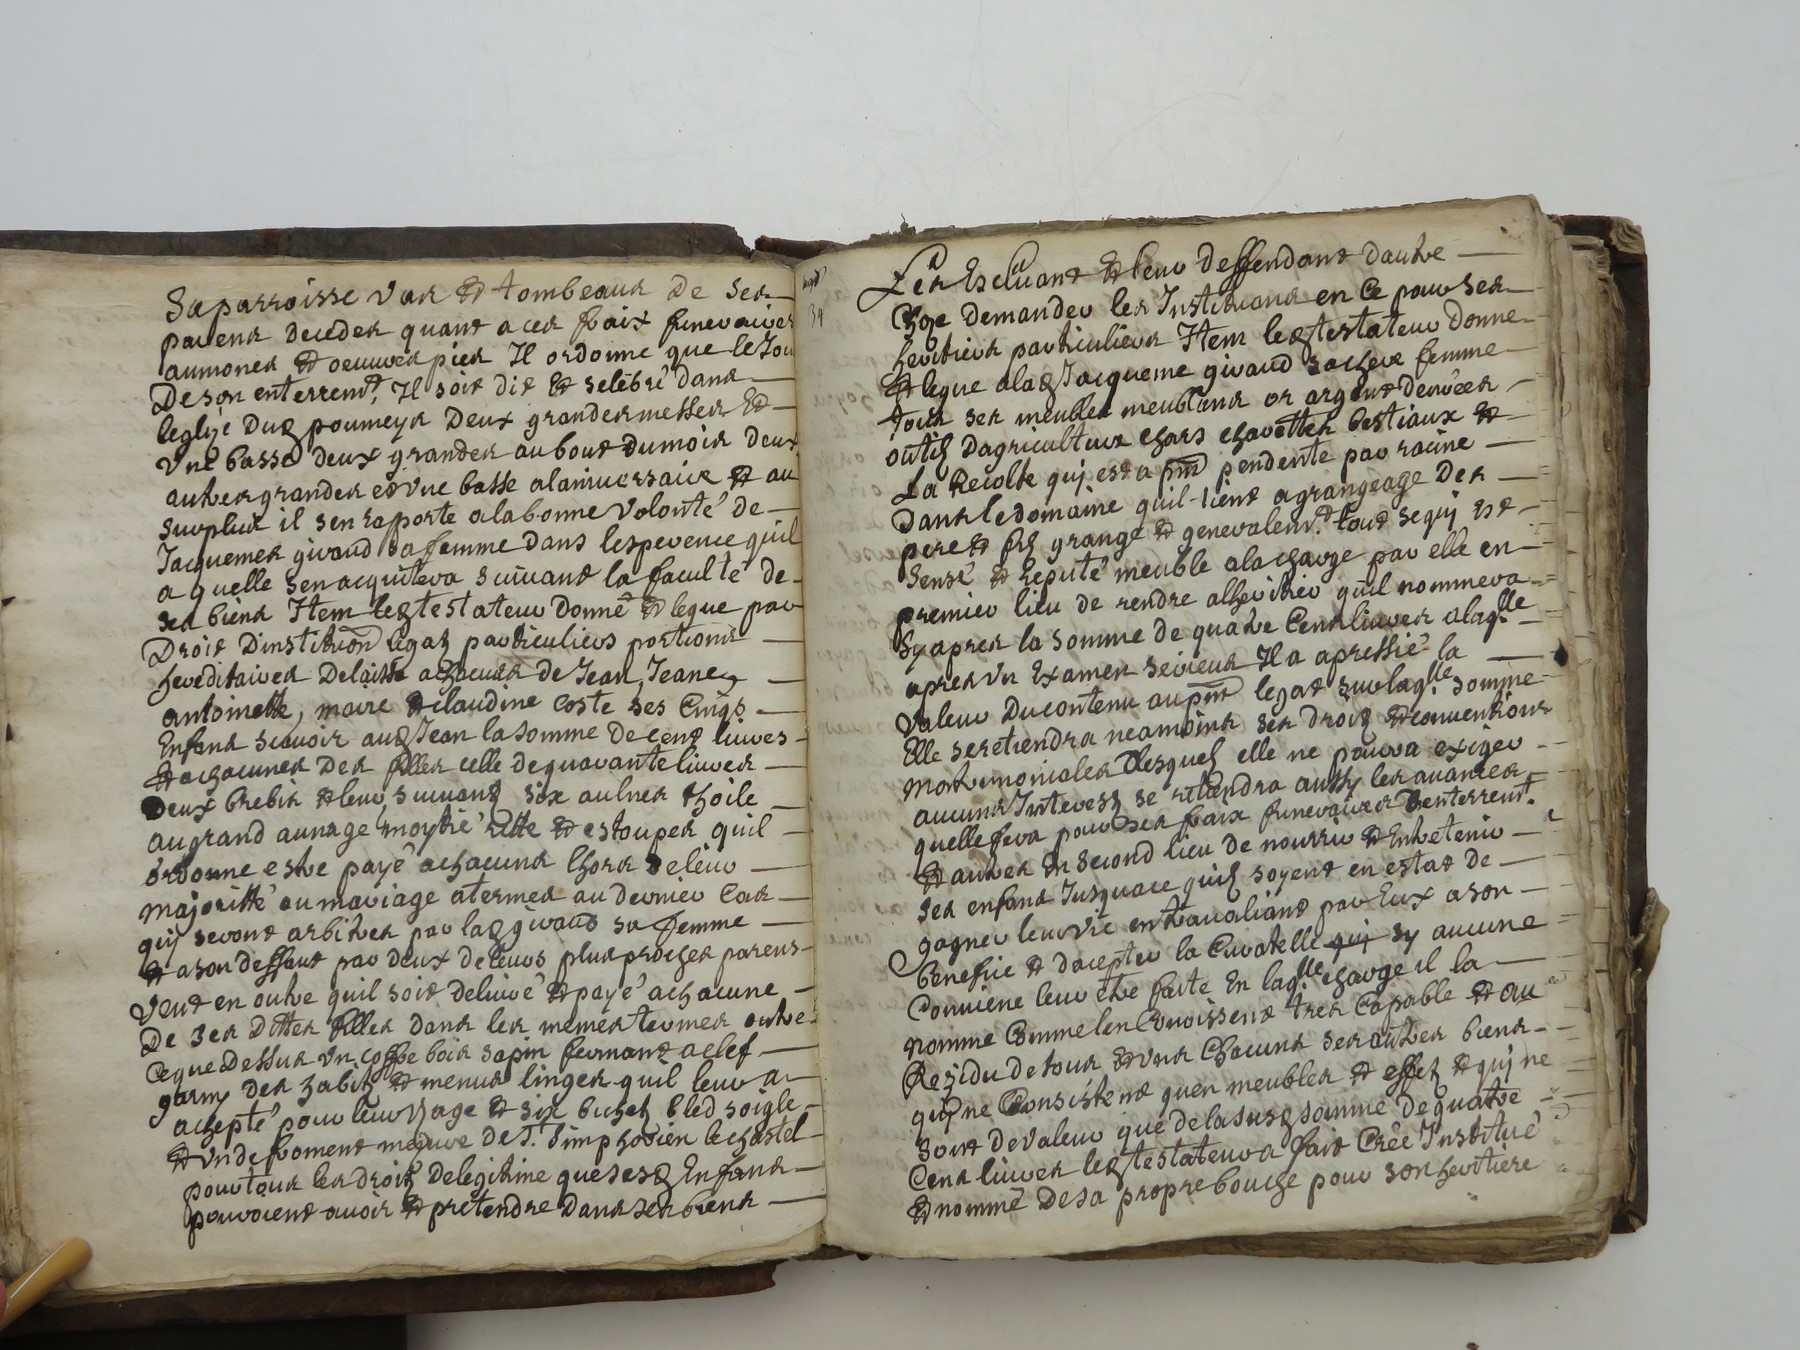 Saparroisse Vas et tombeaux de ses
parens decedes quant a ces fraix funeraires
aumones et oeuvres pies Il ordonne que le Jour
De son enterremt, Il soit dit et selebré dans
leglize dud poumeys Deux grandes messes Et
Vne basse deux grandes au bout du mois deux
autres grandes et vne basse alaniversaire et au
surplus il sen raporte a la bonne Volonté de
Jacquemes giraud sa femme dans lesperence quil
a quelle sen acquitera suivant la faculté de
ses biens Item led testateur donne et legue par
Droit Dinstitution legat particuliers portions
hereditaires Delaisse a chacuns de Jean, Jeane,
antoinette, marie et claudine coste ses Cinqs
Enfans scavoir aud Jean la somme de cent livres
et achacunes Des filles celle de quarante livres
Deux brebis et leur suivant six aulnes thoile
au grand aunage moytié ritte et estoupes quil
ordonne estre payé achacuns lhors de leur
majoritté ou mariage a termes au dernier Cas
quy seront arbitres par lad giraud sa femme
et a son deffaut par deux de leurs plus proches parens
Veut en outre quil soit delivré et payé achacune
De ses dittes filles dans les memes termes outre
Ceque Dessus vn coffre bois sapin fermant a clef
garny des habits et menus linges quil leur a
achepté pour leur Vzage et six bichets bled soigle
et vn de froment mezure de St. Simphorien le chastel
pour tous les droits Delegitime que sesd Enfans
pouroient avoir et pretendre Dans ses biens
34
Les Excluant et leur deffendant dautre
Choze Demander les Instituans en Ce pour ses
heritiers particuliers Item led testateur Donne
et legue a lad Jacqueme giraud sa chere femme
tous ses meubles meublans or argent denrées
outils dagriculture chars charettes bestiaux et
La Recolte quj est a pnt pendente par racine
Dans le domaine quil tient a grangeage Des
pere et fils grange et generalemt. tout se quj Est
sensé et reputé meuble a la charge par elle en
premier lieu de rendre alheritier quil nommera
Sy apres la somme de quatre Cens livres a laqlle
apres vn Examen serieux Il a apressié la
Valeur Du contenu au pnt legat sur laqlle somme
Elle se retiendra neamoins ses droits et conventions
matrimoniales desquels elle ne poura exiger
aucuns Interests se retiendra aussy les avances
quelle fera pour ses fraix funeraires Denterremt.
et autres En second lieu de nourrir et Entretenir
ses enfans Jusquace quils soyent en estat de
gagner leur vie en travaliant par Eux a son
benefice et dacepter la Curatelle sy aucune
Conviene leur etre faite En laqlle charge il la
nomme Comme len Conoissent tres Capable et au
Residu de tous et vns Chacuns ses autres biens
quj ne Consistent quen meubles et effets et quj ne
sont de valeur que de la susd somme de quatre
Cens livres led testateur a fait Crée Institué
et nommé De sa propre bouche pour son heritiere